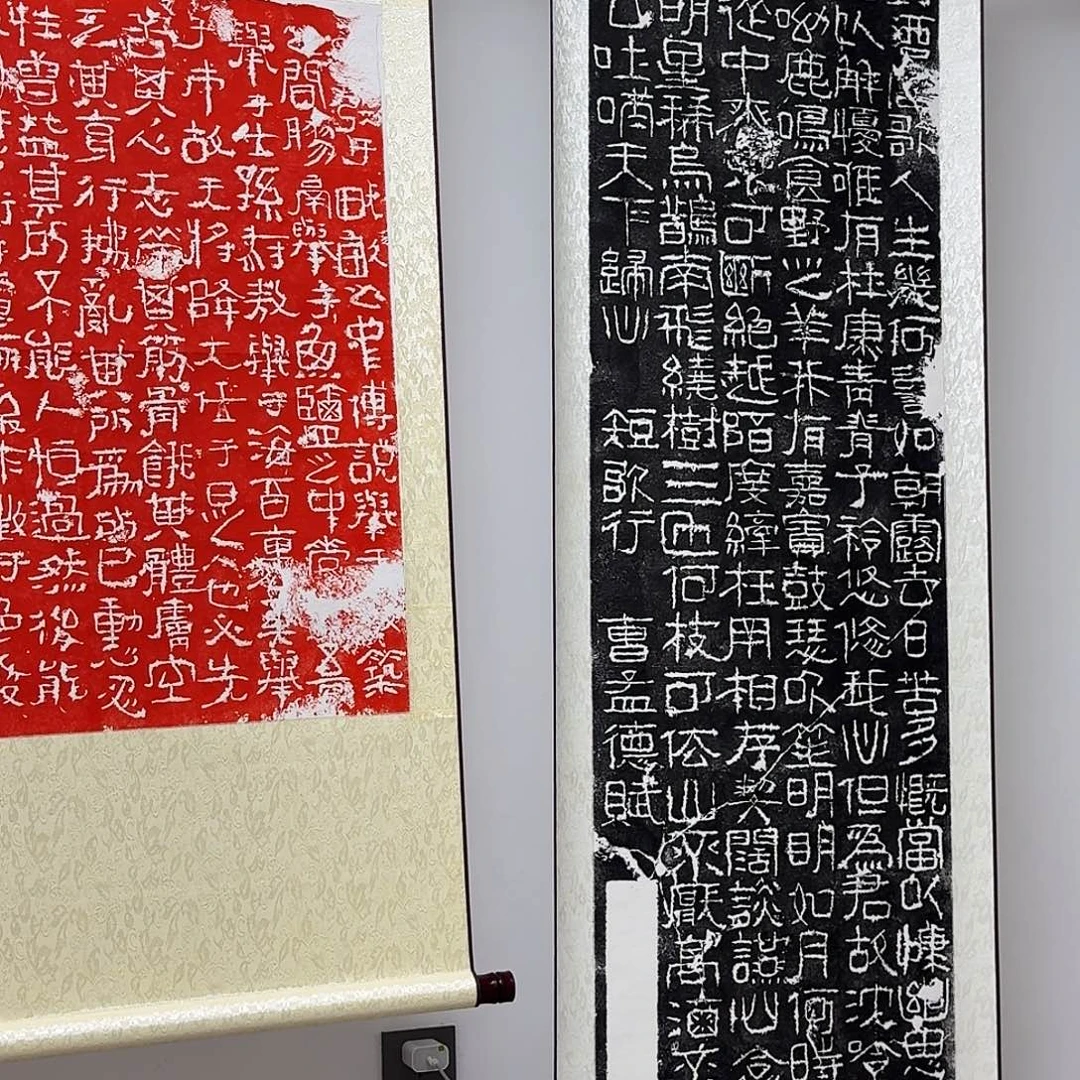 酒當歌人生幾何譬如朝露去日苦多慨當以慷幽思
以解憂唯有杜康青青子衿悠悠我心但爲君故沈吟
呦鹿鳴食野之苹我有嘉賓鼓瑟吹笙明明如月何時
從中來不可斷絕越陌度阡枉用相存契闊談讌心念
明星稀烏鵲南飛繞樹三匝何枝可依山不厭高海不
公吐哺天下歸心 短歌行 曹孟德賦
發于畎畝之中傅說舉于 築
之間膠鬲舉于魚鹽之中管 吾
舉于士孫叔敖舉于海百里奚舉
于市故天將降大任于是人也必先
苦其心志勞其筋骨餓其體膚空
乏其身行拂亂其所爲所已動心忍
性曾益其所不能人恒過然後能